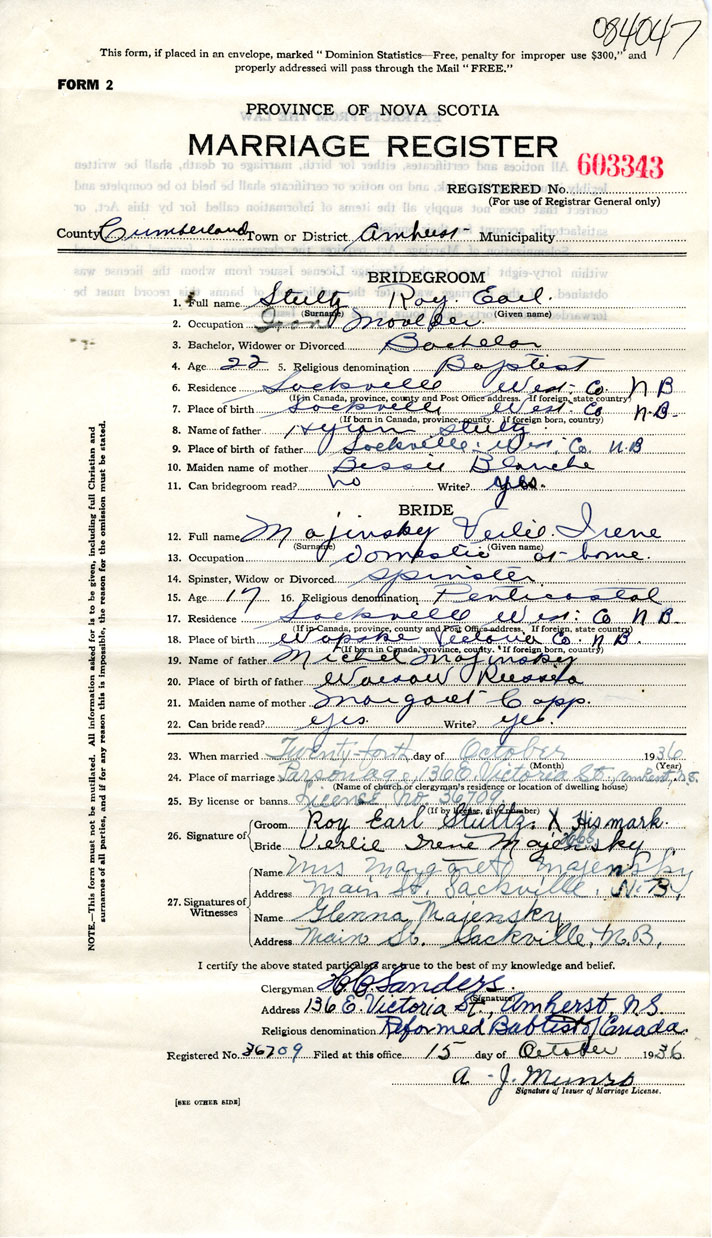 084047
This form, if placed in an envelope, marked "Dominion Statistics—Free, penalty for improper use $300," and
properly addressed will pass through the Mail "FREE."
FORM 2
PROVINCE OF NOVA SCOTIA
MARRIAGE REGISTER
603343
REGISTERED No.
(For use of Registrar General only)
County Cumberland Town or District Amherst Municipality
BRIDEGROOM
1. Full name Stultz Roy Earl.
(Surname) (Given name)
2. Occupation Iron Moulder
3. Bachelor, Widower or Divorced Bachelor
4. Age 22 5. Religious denomination Baptist
6. Residence Sackville West. Co. N B
(If in Canada, province, county and Post Office address. If foreign, state country)
7. Place of birth Sackville West. Co N.B-
(If born in Canada, province, county. If foreign born, country)
8. Name of father Stultz
9. Place of birth of father Sackville. West. Co. N.B
10. Maiden name of mother Bessie Blanche
11. Can bridegroom read? No Write? yes.
BRIDE
12. Full name Majinsky Verlie Irene
(Surname) (Given name)
13. Occupation domestic at home.
14. Spinster, Widow or Divorced Spinster
15. Age 17 16. Religious denomination Penticostal
17. Residence Sackville West: Co N B.
(If in Canada, province, county and Post Office address. If foreign, state country)
18. Place of birth Wapske Victoria Co. N.B.
(If born in Canada, province, county. If foreign born, country)
19. Name of father Michel Majinsky
20. Place of birth of father Warsaw Russia
21. Maiden name of mother Margaret Copp.
22. Can bride read? yes. Write? yes.
23. When married day of October 1936
(Month) (Year)
24. Place of marriage Parsonage, 136 E. Victoria St., Amherst, N.S.
(Name of church or clergyman's residence or location of dwelling house)
25. By license or banns License No 36709
(If by license, give number)
26. Signature of
Groom Roy Earl Stultz. X His mark.
Bride Verlie Irene Majensky
27. Signatures of Witnesses
Name Mrs Margaret Majensky
Address Main St. Sackville, N.B.
Name Glenna Majensky
Address Main St. Sackville, N.B.
I certify the above stated particulars are true to the best of my knowledge and belief.
Clergyman H C Sanders.
(Signature)
Address 136 E. Victoria St., Amherst, N.S.
Religious denomination Reformed Babtist of Canada.
Registered No. 36709 Filed at this office 15 day of October 1936
A. J. Munro
Signature of Issuer of Marriage License.
[SEE OTHER SIDE]
NOTE.—This form must not be mutilated. All information asked for is to be given, including full Christian and
surnames of all parties, and if for any reason this is impossible, the reason for the omission must be stated.